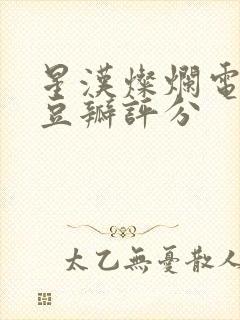 星漢燦爛電
豆瓣評分
太乙無憂散人